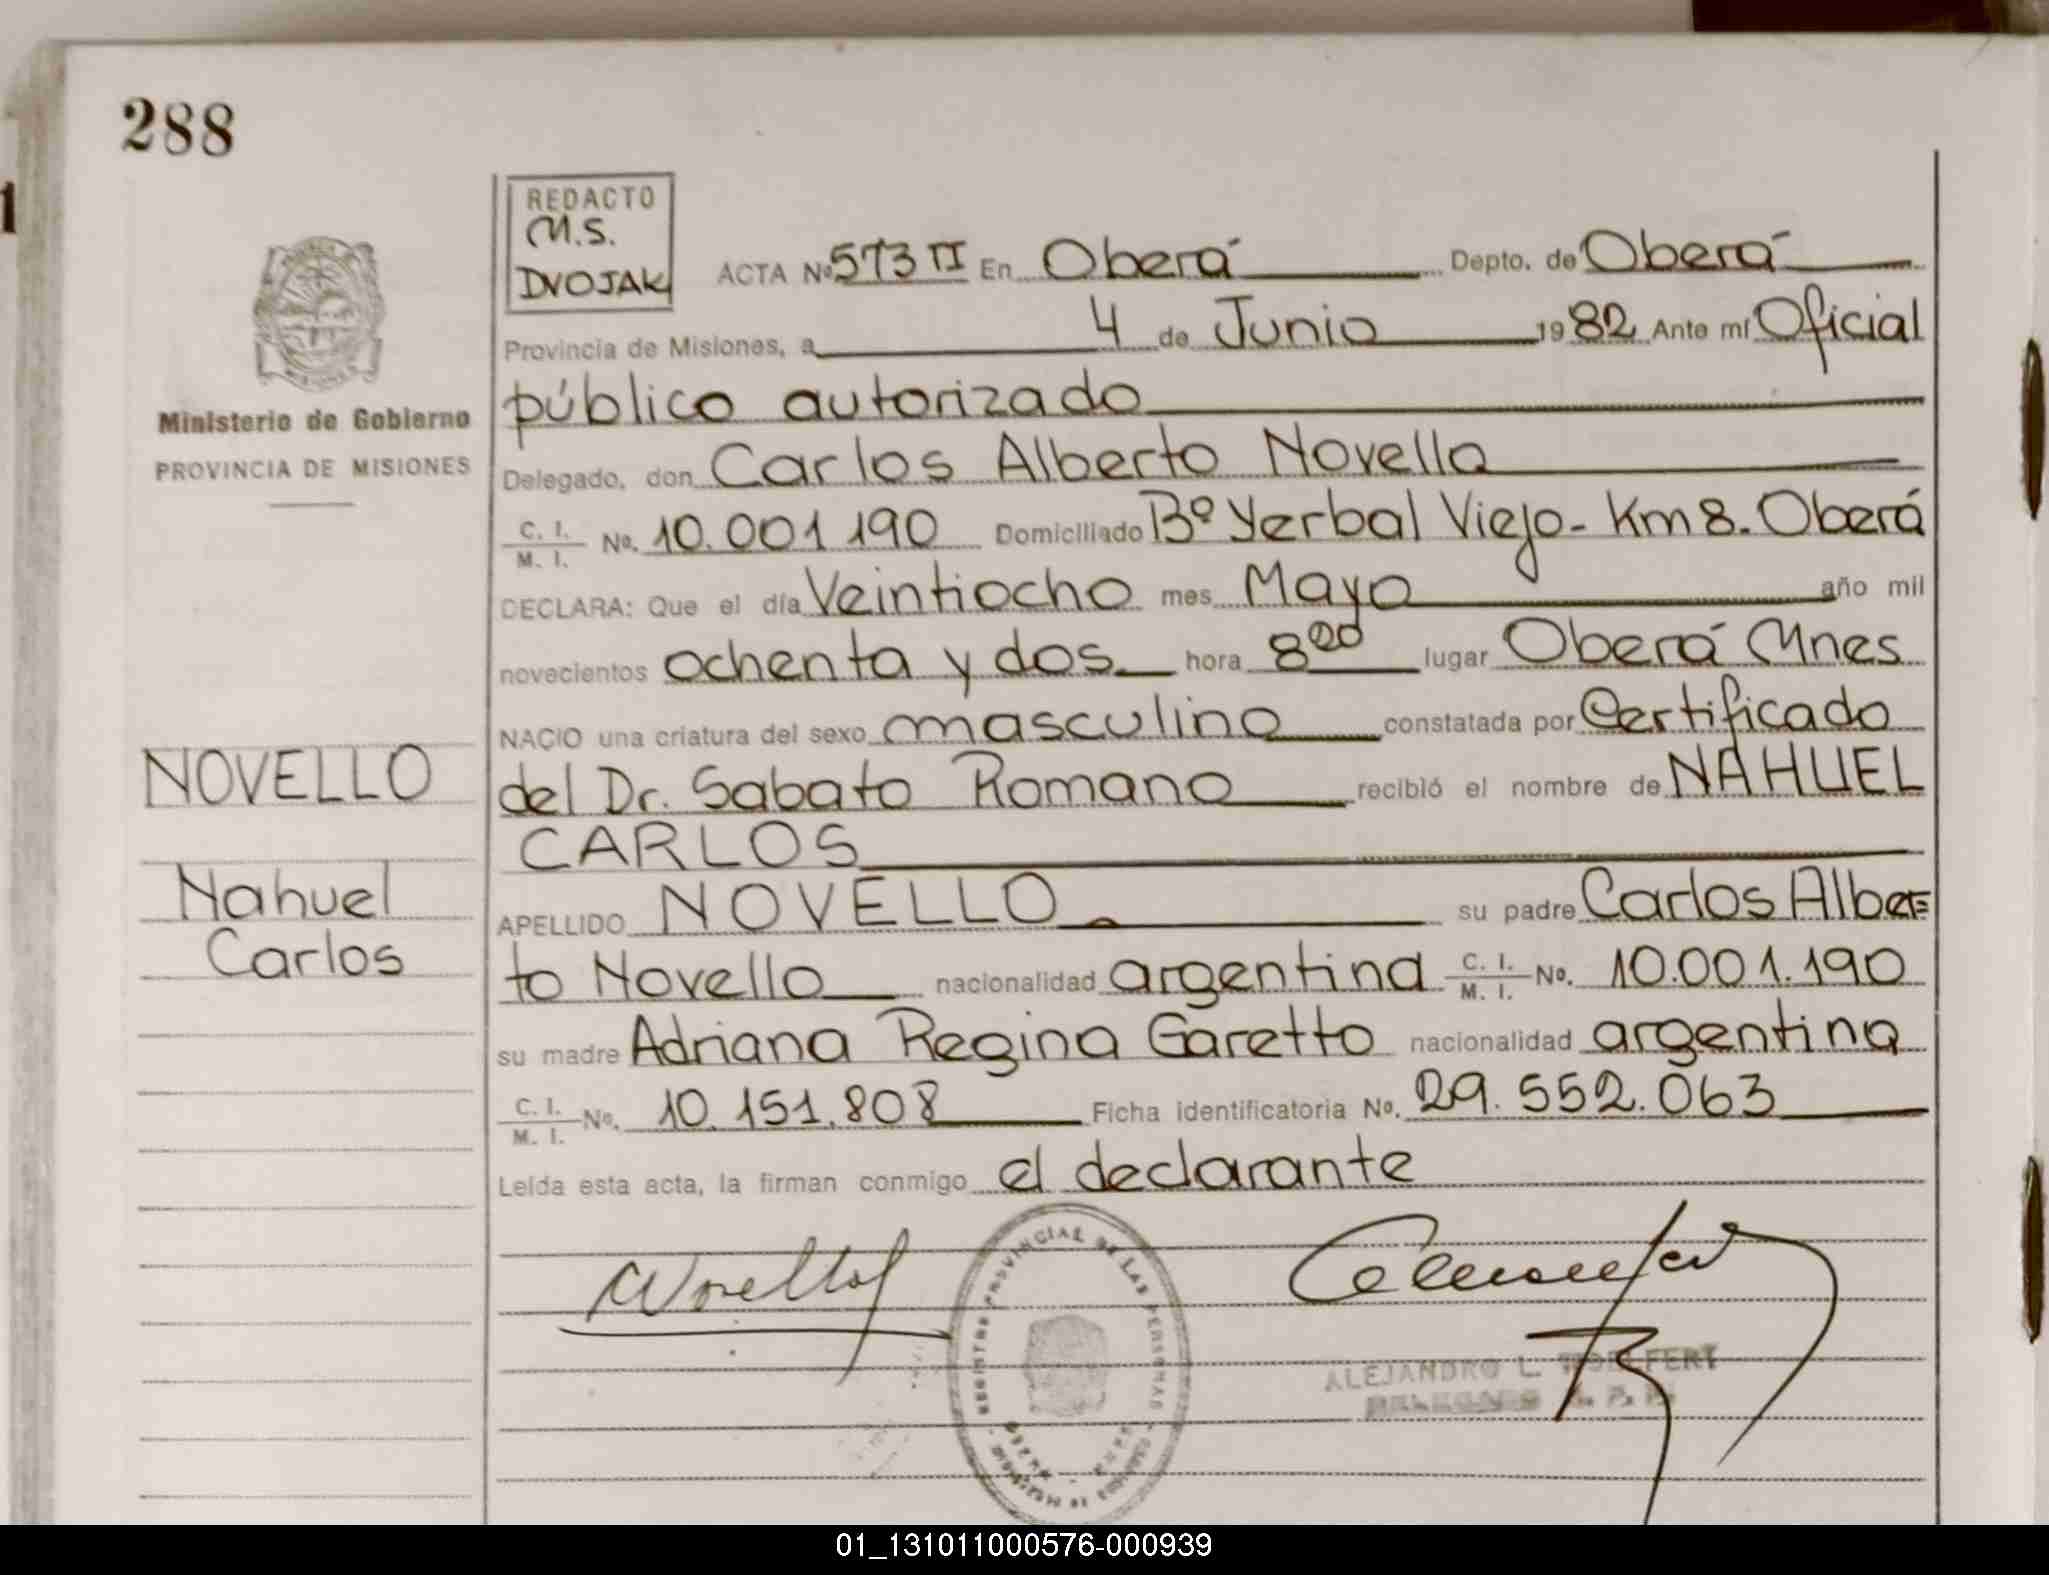 288
1
REDACTO
M.S.
DVOJAK
ACTA Nº 573 II En Oberá Depto. de Oberá
Provincia de Misiones, a 4 de Junio 1982 Ante mí Oficial
público autorizado
Ministerio de Gobierno
PROVINCIA DE MISIONES
Delegado, don Carlos Alberto Novello
C. I.
M. I. No. 10.001190 Domiciliado Bº Yerbal Viejo- Km 8. Oberá
DECLARA: Que el día Veintiocho mes Mayo año mil
novecientos ochenta y dos hora 8 20 lugar Oberá Mnes
NACIO una criatura del sexo masculino constatada por Certificado
del Dr. Sabato Romano recibió el nombre de NAHUEL
CARLOS
NOVELLO
Nahuel
Carlos
APELLIDO NOVELLO su padre Carlos Alber=
to Novello nacionalidad argentina C. I.
M. I. No. 10.001.190
su madre Adriana Regina Garetto nacionalidad argentina
C. I.
M. I. No. 10.151.808 Ficha identificatoria No. 29.552.063
Leída esta acta, la firman conmigo el declarante
REGISTRO PROVINCIAL DE LAS PERSONAS
ALEJANDRO L.
01_131011000576-000939